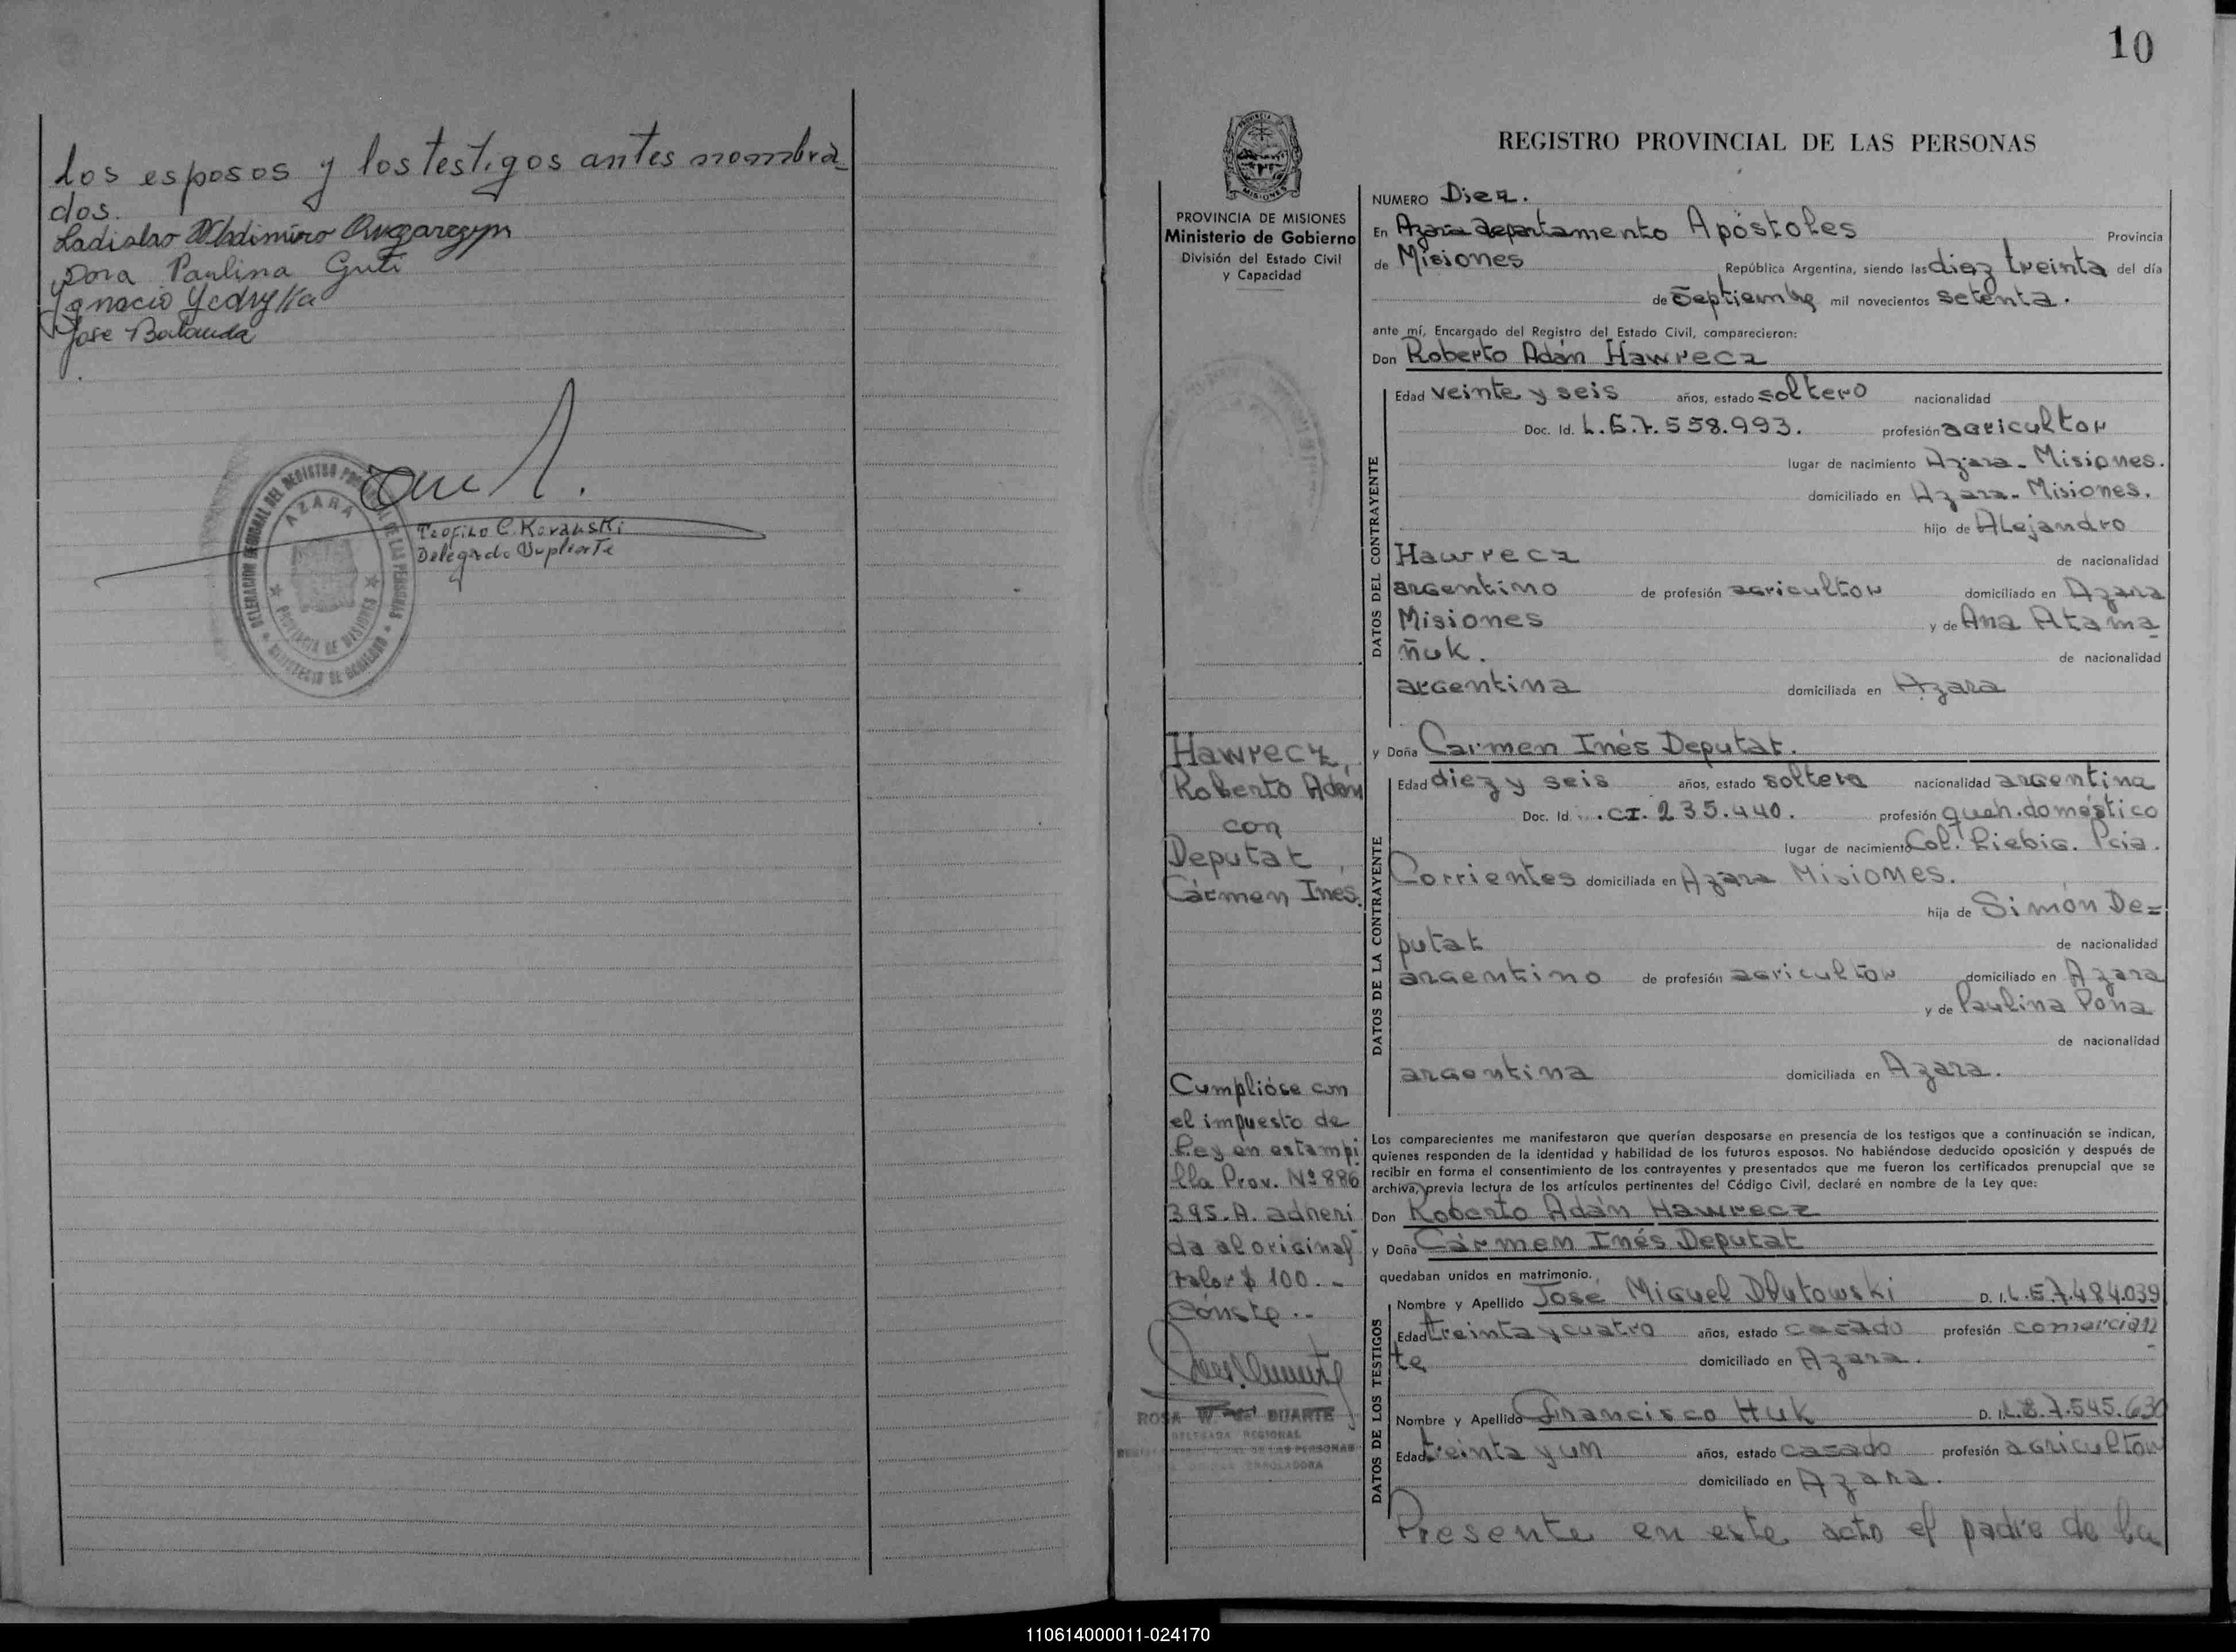 los esposos y los testigos antes nombra
dos.
Ladislao Wladimiro
Dora Paulina Guti
Ignacio Yedryka
Jose Balanda
DELEGACION REGIONAL DEL REGISTRO PROVINCIAL DE LAS PERSONAS
AZARA
PROVINCIA DE MISIONES
MINISTERIO DE GOBIERNO
Teofilo C. Kovalski
Delegado Suplente
10
PROVINCIA DE MISIONES
Ministerio de Gobierno
División del Estado Civil
y Capacidad
Hawrecz,
Roberto Adán
con
Deputat
Cármen Inés.
Cumplióse con
el impuesto de
Ley en estampi
lla Prov. Nº 886
395-A. adheri
da al original
valor $ 100.-
Conste.-
ROSA W. de DUARTE
DELEGADA REGIONAL
REGISTRO PROVINCIAL DE LAS PERSONAS
OFICINA ENROLADORA
REGISTRO PROVINCIAL DE LAS PERSONAS
NUMERO Diez.
En Azara departamento Apóstoles Provincia
de Misiones República Argentina, siendo las diez treinta del día
de Septiembre mil novecientos setenta.
ante mí, Encargado del Registro del Estado Civil, comparecieron:
Don Roberto Adán Hawrecz
DATOS DEL CONTRAYENTE
Edad veinte y seis años, estado soltero nacionalidad
Doc. Id. L.E.7.558.993. profesión agricultor
lugar de nacimiento Azara - Misiones.
domiciliado en Azara - Misiones.
hijo de Alejandro
Hawrecz de nacionalidad
argentino de profesión agricultor domiciliado en Azara
Misiones y de Ana Atama
ñuk. de nacionalidad
argentina domiciliada en Azara
y Doña Carmen Inés Deputat.
DATOS DE LA CONTRAYENTE
Edad diez y seis años, estado soltera nacionalidad argentina
Doc. Id. C.I. 235.440. profesión queh. doméstico
lugar de nacimiento Col. Liebig. Pcia.
Corrientes domiciliada en Azara Misiones.
hija de Simón De=
putat de nacionalidad
argentino de profesión agricultor domiciliado en Azara
y de Paulina Pona
de nacionalidad
argentina domiciliada en Azara.
Los comparecientes me manifestaron que querían desposarse en presencia de los testigos que a continuación se indican,
quienes responden de la identidad y habilidad de los futuros esposos. No habiéndose deducido oposición y después de
recibir en forma el consentimiento de los contrayentes y presentados que me fueron los certificados prenupcial que se
archiva, previa lectura de los artículos pertinentes del Código Civil, declaré en nombre de la Ley que:
Don Roberto Adán Hawrecz
y Doña Cármen Inés Deputat
quedaban unidos en matrimonio.
DATOS DE LOS TESTIGOS
Nombre y Apellido José Miguel Dlutowski D. I. L.E.7.484.039
Edad treinta y cuatro años, estado casado profesión comercian
te domiciliado en Azara.
Nombre y Apellido Francisco Huk D. I. L.E.7.545.630
Edad treinta y un años, estado casado profesión agricultor
domiciliado en Azara.
Presente en este acto el padre de la
110614000011-024170